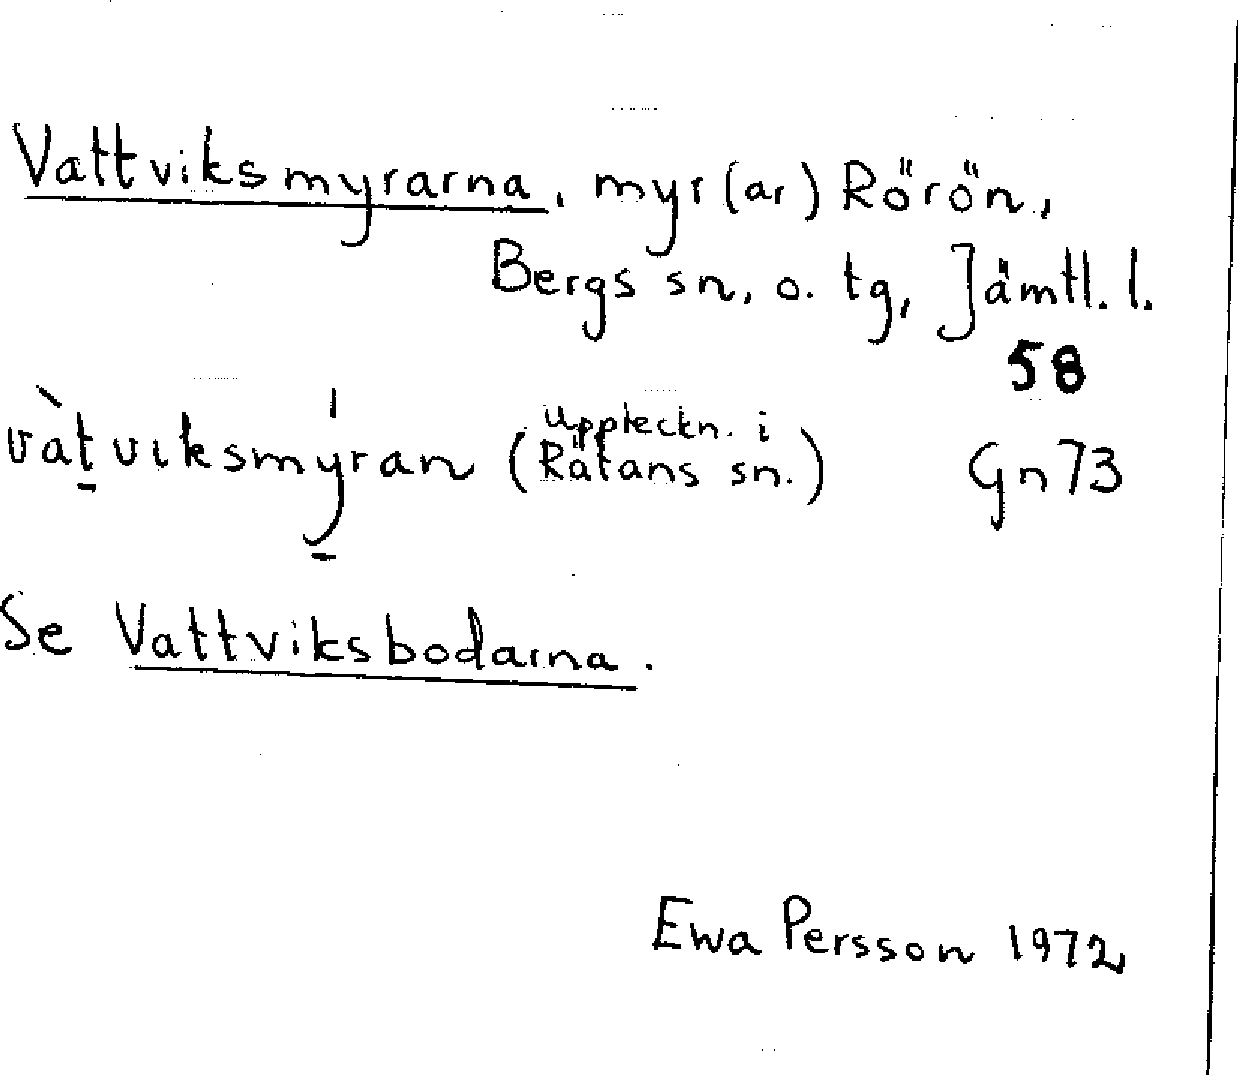 Vattviksmyrarna, myr(ar) Rörön,
Bergs sn, o. tg, Jämtl. l.
58
vàt̠viksmý̠ran (uppteckn. i Rätans sn.) Gn73
Se Vattviksbodarna.
Ewa Persson 1972